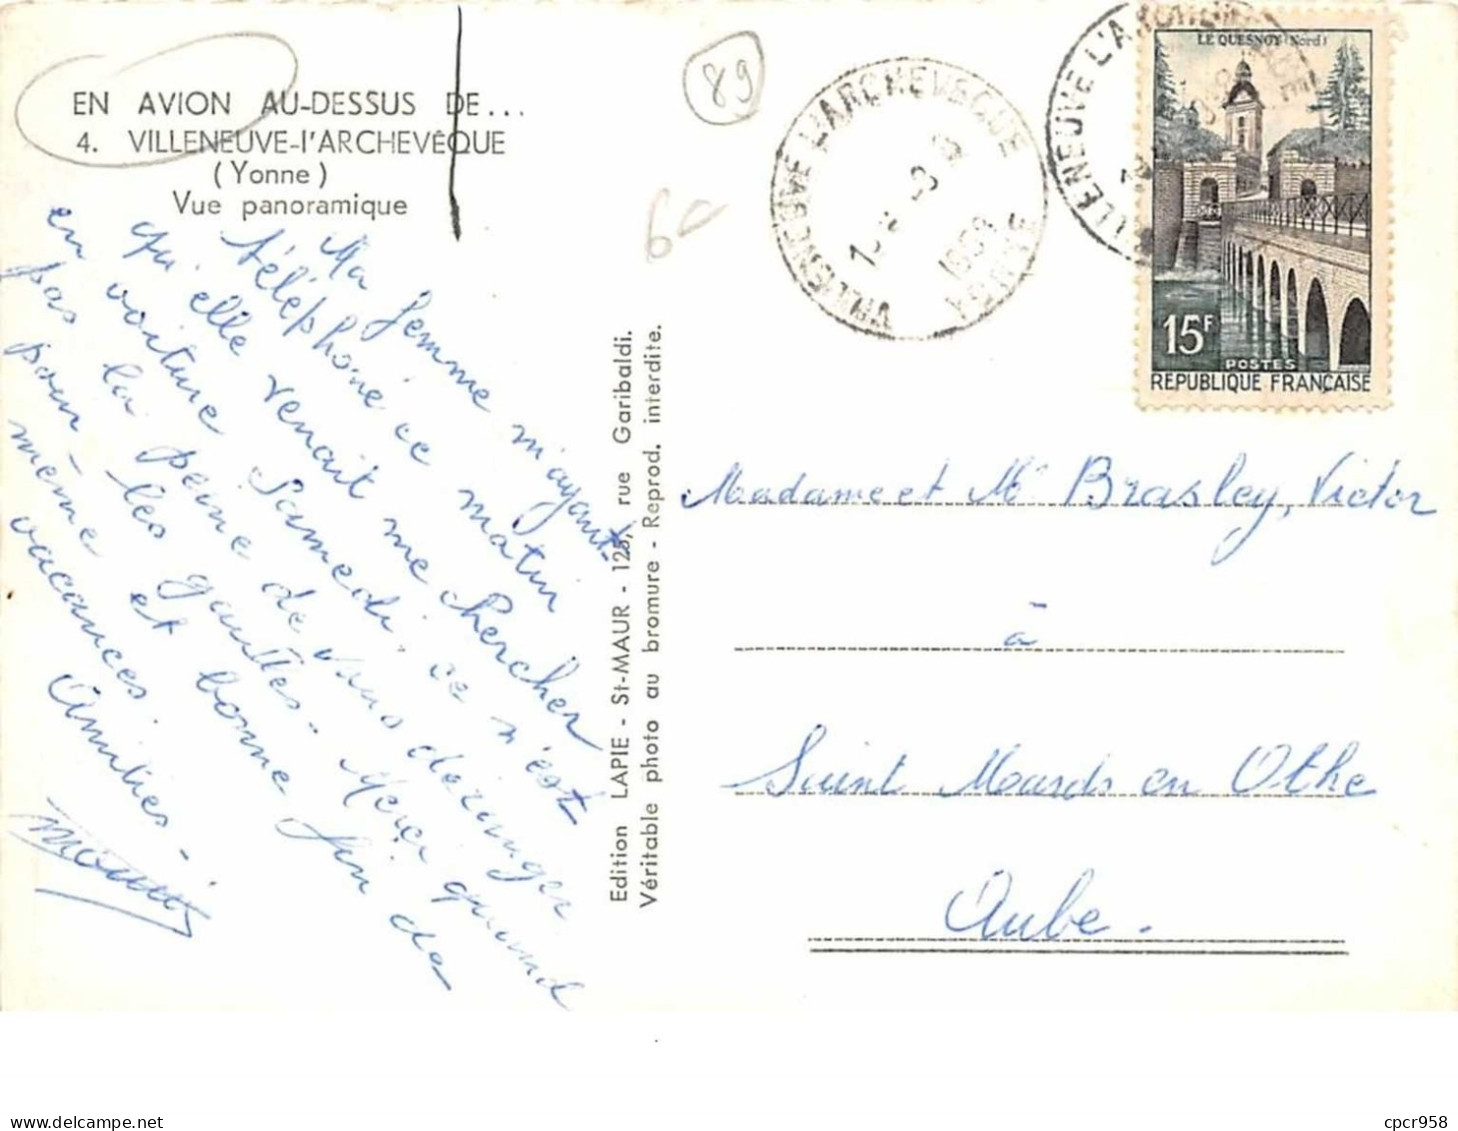 EN AVION AU-DESSUS DE...
4. VILLENEUVE-l'ARCHEVÊQUE
(Yonne)
Vue panoramique
89
Ma femme m'ayant
téléphoné ce matin
qu'elle venait me chercher
en voiture Samedi, ce n'est
pas la peine de vous déranger
pour les gaulles. Merci quand
même et bonne fin de
vacances.
Amitiés.
Edition LAPIE - St-MAUR - 125, rue Garibaldi.
Véritable photo au bromure - Reprod. interdite.
VILLENEUVE L'ARCHEVEQUE
YONNE
LE QUESNOY (Nord)
15F
POSTES
REPUBLIQUE FRANÇAISE
Madame et Mr Brasley, Victor
à
Saint Mards en Othe
Aube.
cpcr958